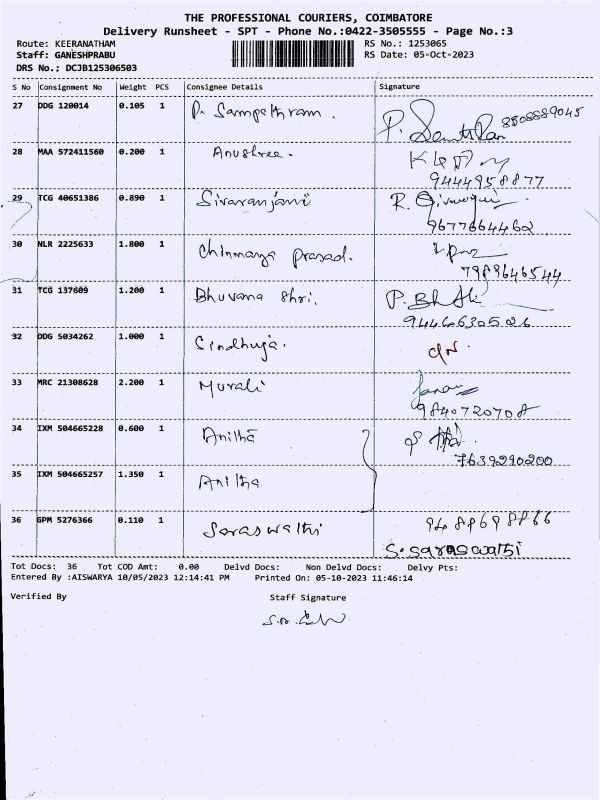 THE PROFESSIONAL COURIERS, COIMBATORE
Delivery Runsheet - SPT - Phone No.:0422-3505555 - Page No.:3
Route: KEERANATHAM RS No.: 1253065
Staff: GANESHPRABU RS Date: 05-Oct-2023
DRS No.; DCJB125306503
S No Consignment No Weight PCS Consignee Details Signature
27 DDG 120014 0.105 1 P. Sampathram. 8508889045
28 MAA 572411560 0.200 1 Anushree.
9444958877
29 TCG 40651386 0.890 1 Sivaranjani R.
9677664462
30 NLR 2225633 1.800 1 Chinmaya Prasad.
7989646544
31 TCG 137609 1.200 1 Bhuvana Shri.
32 DDG 5034262 1.000 1 Sindhuja.
33 MRC 21308628 2.200 1 Murali
9840720708
34 IXM 504665228 0.600 1 Anitha
7639290200
35 IXM 504665257 1.350 1 Anitha
36 GPM 5276366 0.110 1 Saraswathi
S. Saraswathi
Tot Docs: 36 Tot COD Amt: 0.00 Delvd Docs: Non Delvd Docs: Delvy Pts:
Entered By :AISWARYA 10/05/2023 12:14:41 PM Printed On: 05-10-2023 11:46:14
Verified By Staff Signature